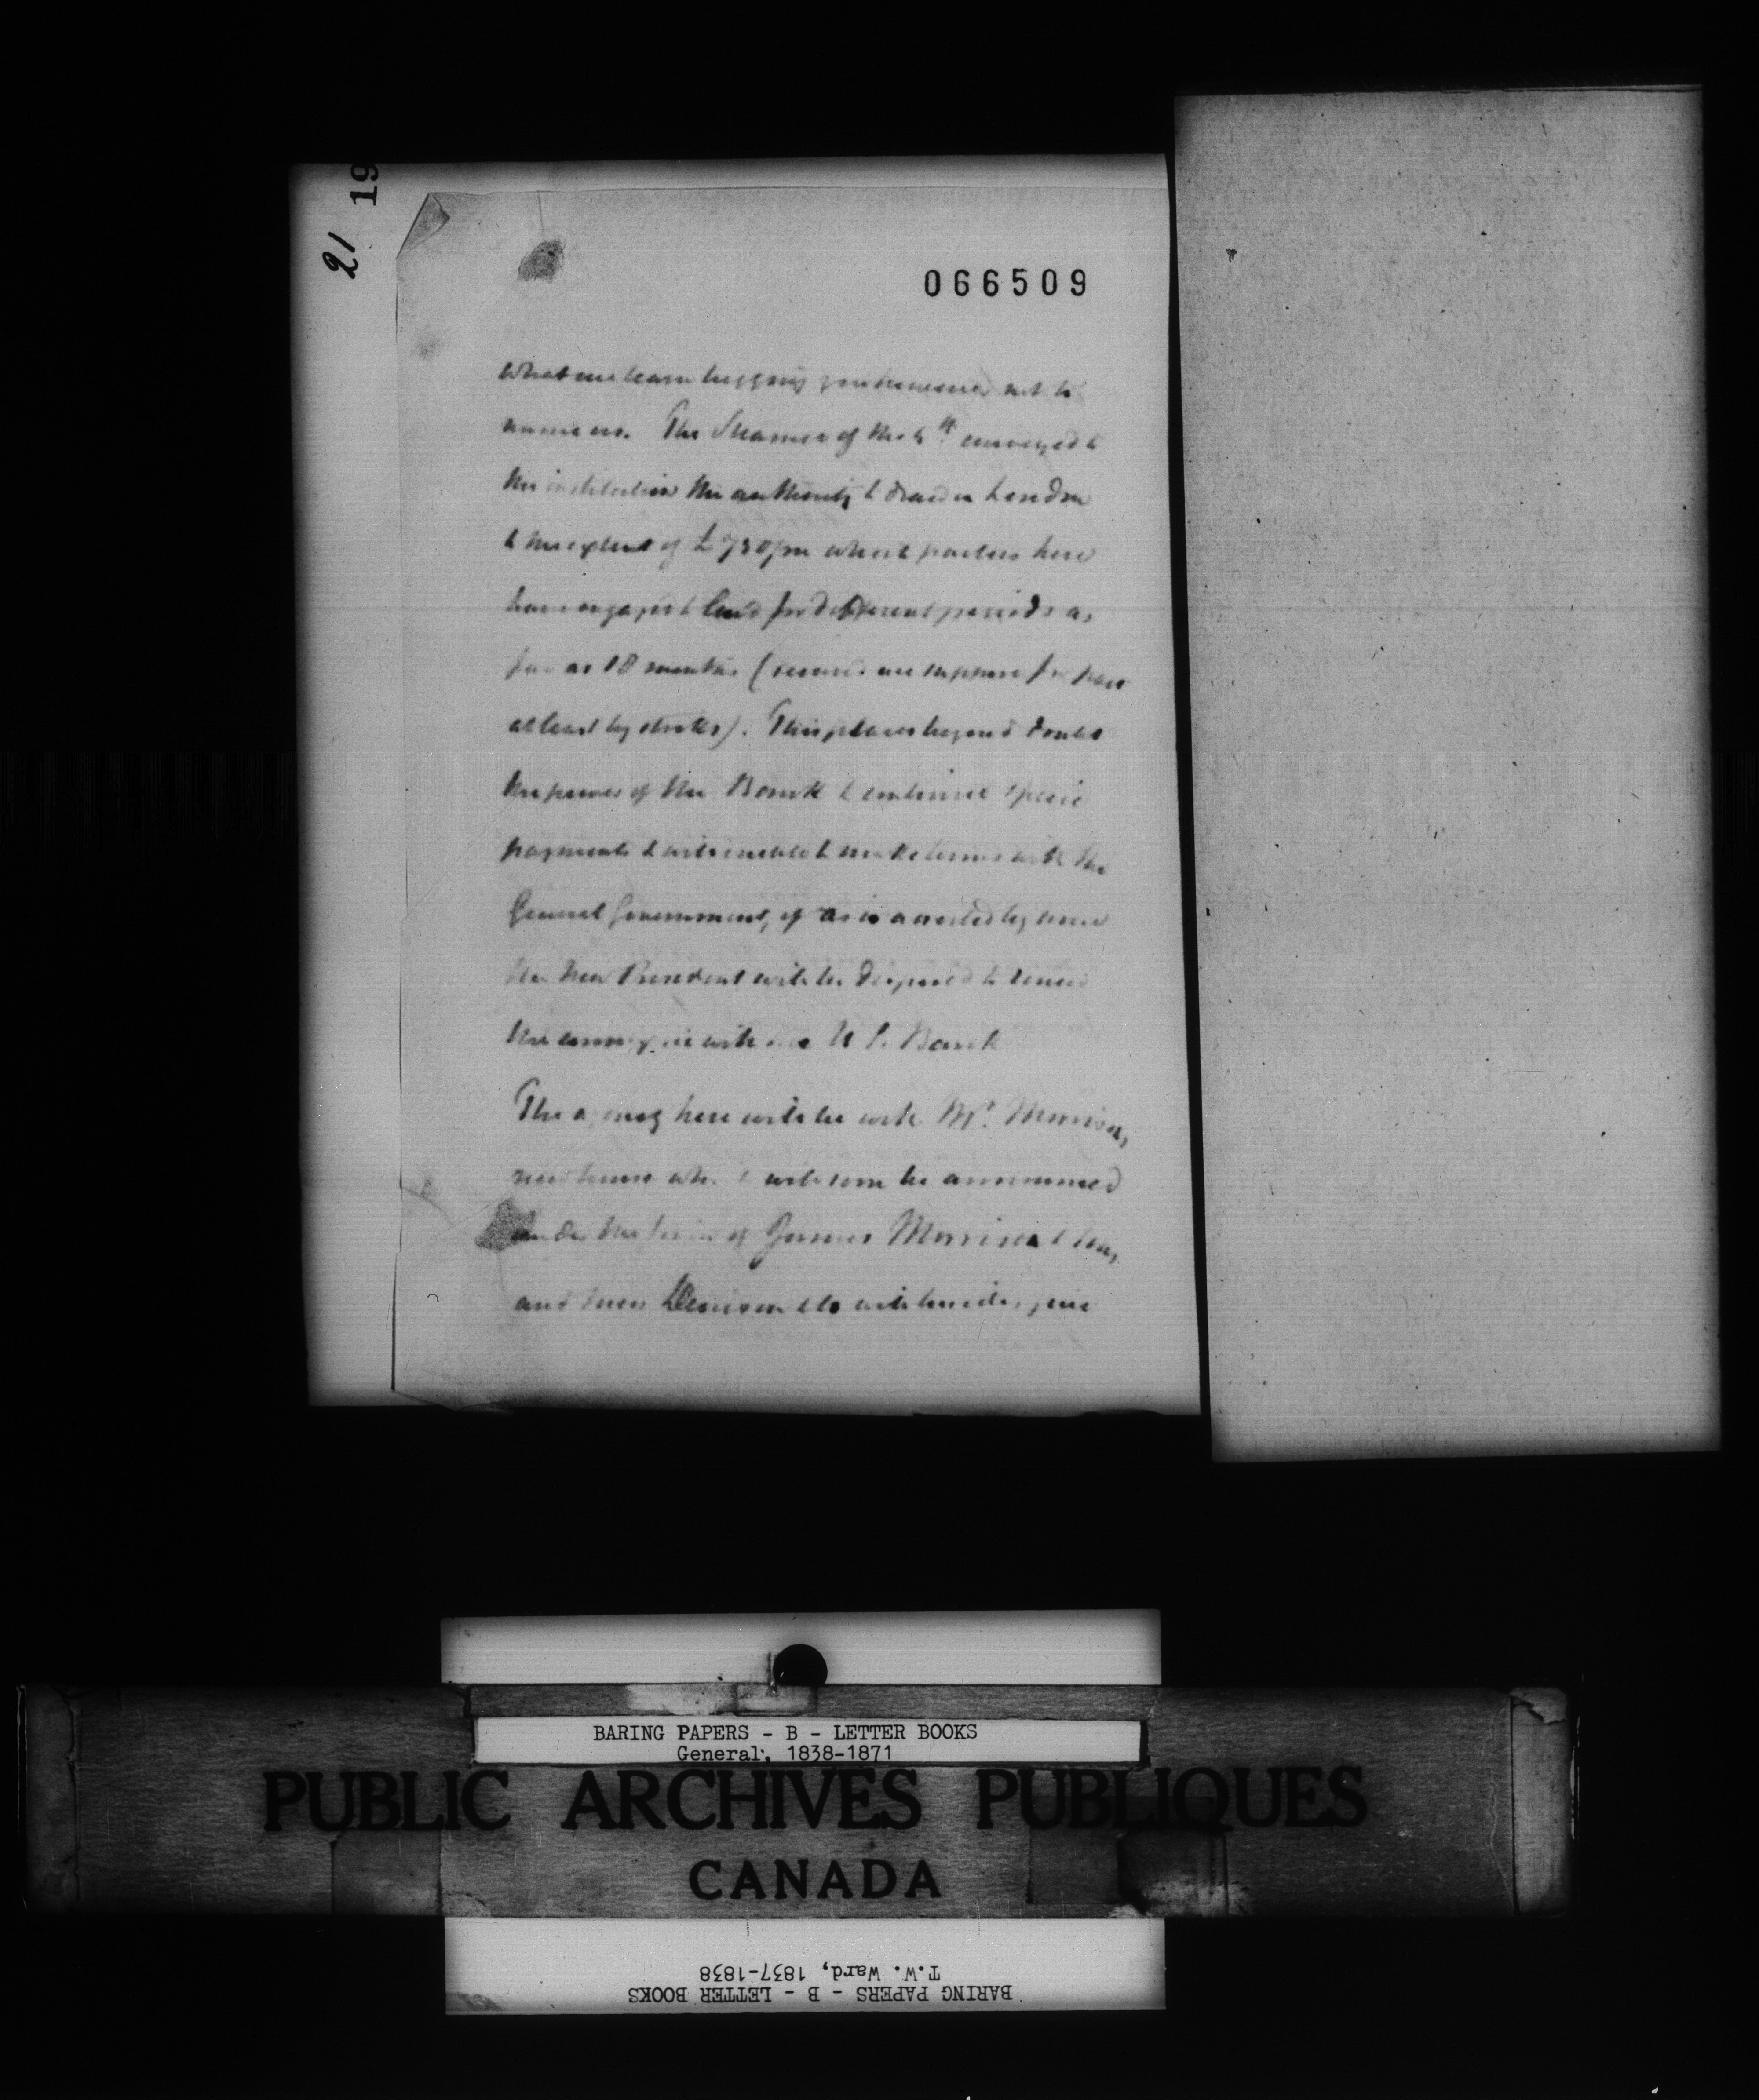 19
21
066509
what we learn begging you however not to
name us. The Steamer of the 4th conveyed to
the institution the authority to draw on London
to the extent of £750/m which parties here
have engaged to lend for different periods as
far as 18 months (secured we suppose for part
at least by stocks). This places beyond doubt
the power of the Bank to continue specie
payments & will enable to make terms with the
General Government, if as is asserted by some
the New President will be disposed to renew
the connexion with the U S. Bank
The agency here will be with Mr. Morrison,
new house which will soon be announced
under the firm of James Morrison & Co,
and Messrs Denison & Co will
BARING PAPERS - B - LETTER BOOKS
General, 1838-1871
PUBLIC ARCHIVES PUBLIQUES
CANADA
BARING PAPERS - B - LETTER BOOKS
T.W. Ward, 1837-1838